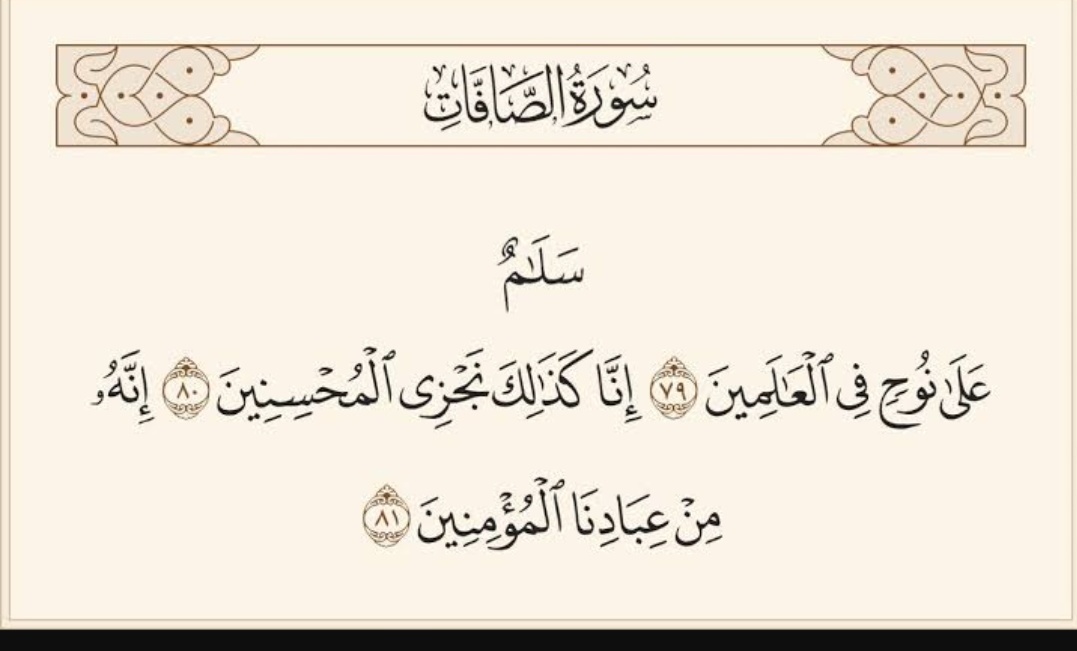 سُورَةُ الصَّافَّاتِ
سَلَـٰمٌ
عَلَىٰ نُوحٍ فِى ٱلْعَـٰلَمِينَ ٧٩ إِنَّا كَذَٰلِكَ نَجْزِى ٱلْمُحْسِنِينَ ٨٠ إِنَّهُۥ
مِنْ عِبَادِنَا ٱلْمُؤْمِنِينَ ٨١